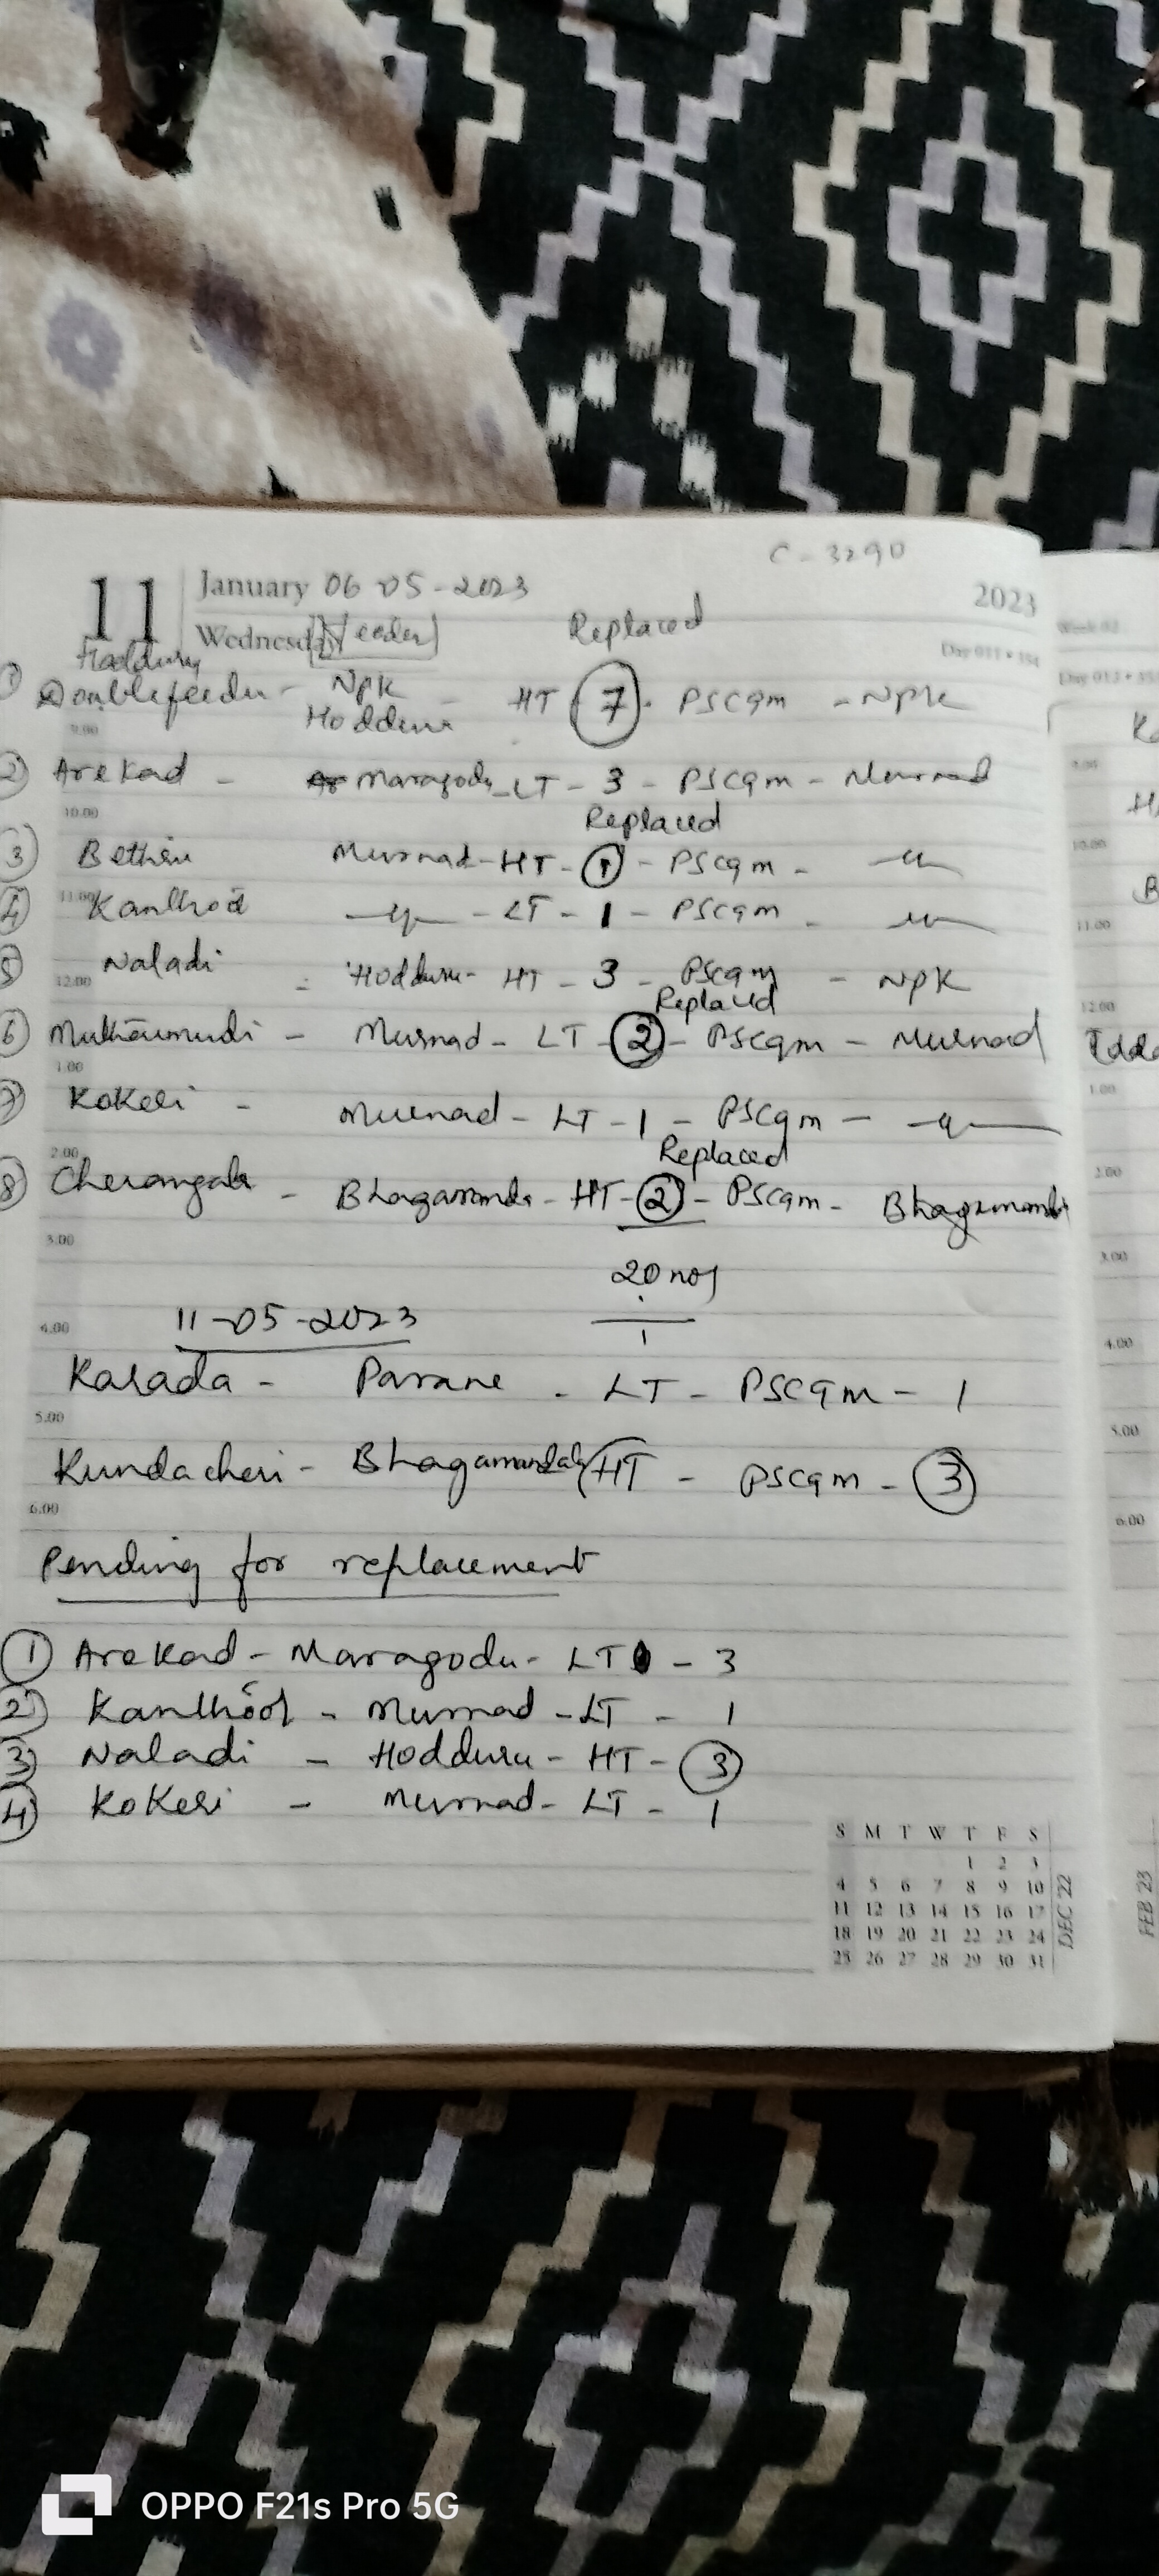 C - 3290
11 January 06 05 - 2023 2023
Wednesday Feeder Replaced
Day 011 • 354
Week 02
Hoddury
1 Doublefeeder - NPK Hodduru - HT 7 - PSCqm - NPK
9.00
Day 012 • 353
2 Arekad - Maragodu - LT - 3 - PSCqm - Murnad
10.00
Replaced
3 Bethu Murnad - HT - 1 - PSCqm - -"-
11.00
4 Kanthod -"- - LT - 1 - PSCqm - -"-
5 Naladi - Hodduru - HT - 3 - PSCqm - NPK
12.00
Replaced
6 Mutharmudi - Murnad - LT - 2 - PSCqm - Murnad
1.00
7 Kokeri - Murnad - LT - 1 - PSCqm - -"-
2.00
Replaced
8 Cherangala - Bhagamanda - HT - 2 - PSCqm - Bhagamandla
3.00
20 nos
4.00
11-05-2023
Karada - Parane - LT - PSCqm - 1
5.00
Kundacheri - Bhagamandala HT - PSCqm - 3
6.00
Pending for replacement
1 Arekad - Maragodu - LT - 3
2 Kanthod - Murnad - LT - 1
3 Naladi - Hodduru - HT - 3
4 Kokeri - Murnad - LT - 1
S M T W T F S
1 2 3
4 5 6 7 8 9 10
11 12 13 14 15 16 17
18 19 20 21 22 23 24
25 26 27 28 29 30 31
DEC '22
FEB '23
9.00
10.00
11.00
12.00
1.00
2.00
3.00
4.00
5.00
6.00
OPPO F21s Pro 5G